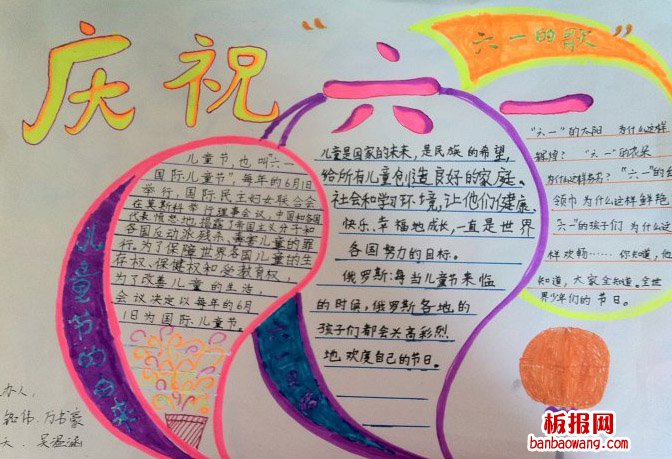 庆祝“六一”
“六一的歌”
儿童节的由来
儿童节,也叫“六一
国际儿童节”,每年的6月1日
举行,国际民主妇女联合会
在莫斯科举行理事会议,中国和各国
代表愤怒地揭露了帝国主义分子和
各国反动派残杀、毒害儿童的罪
行。为了保障世界各国儿童的生
存权、保健权和受教育权,
为了改善儿童的生活,
会议决定以每年的6月
1日为国际儿童节。
儿童是国家的未来,是民族的希望,
给所有儿童创造良好的家庭、
社会和学习环境,让他们健康、
快乐、幸福地成长,一直是世界
各国努力的目标。
俄罗斯:每当儿童节来临
的时候,俄罗斯各地的
孩子们都会兴高彩烈
地欢度自己的节日。
“六一”的太阳 为什么这样
辉煌? “六一”的花朵
为什么这样多姿? “六一”的
领巾 为什么这样鲜艳
六一”的孩子们 为什么这
样欢畅…… 你知道,他
知道,大家全知道。全世
界少年们的节日。
办人:
万书豪
板报网
banbaowang.com